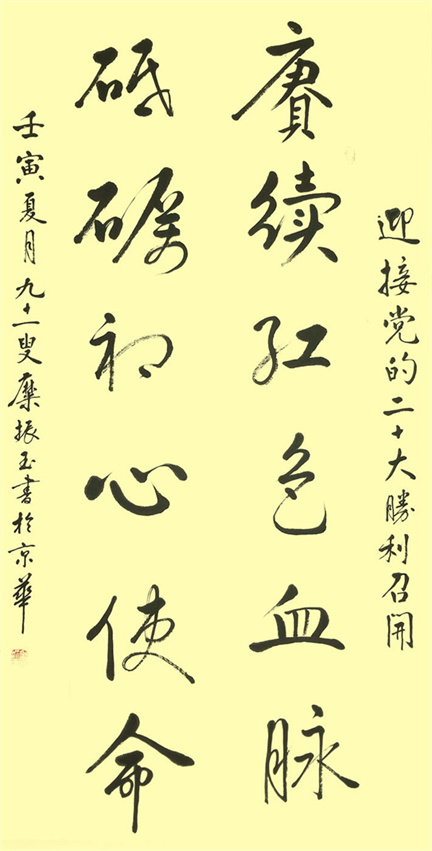 迎接党的二十大勝利召開
赓續红色血脉
砥礪初心使命
壬寅夏月九十一叟糜振玉書於京華